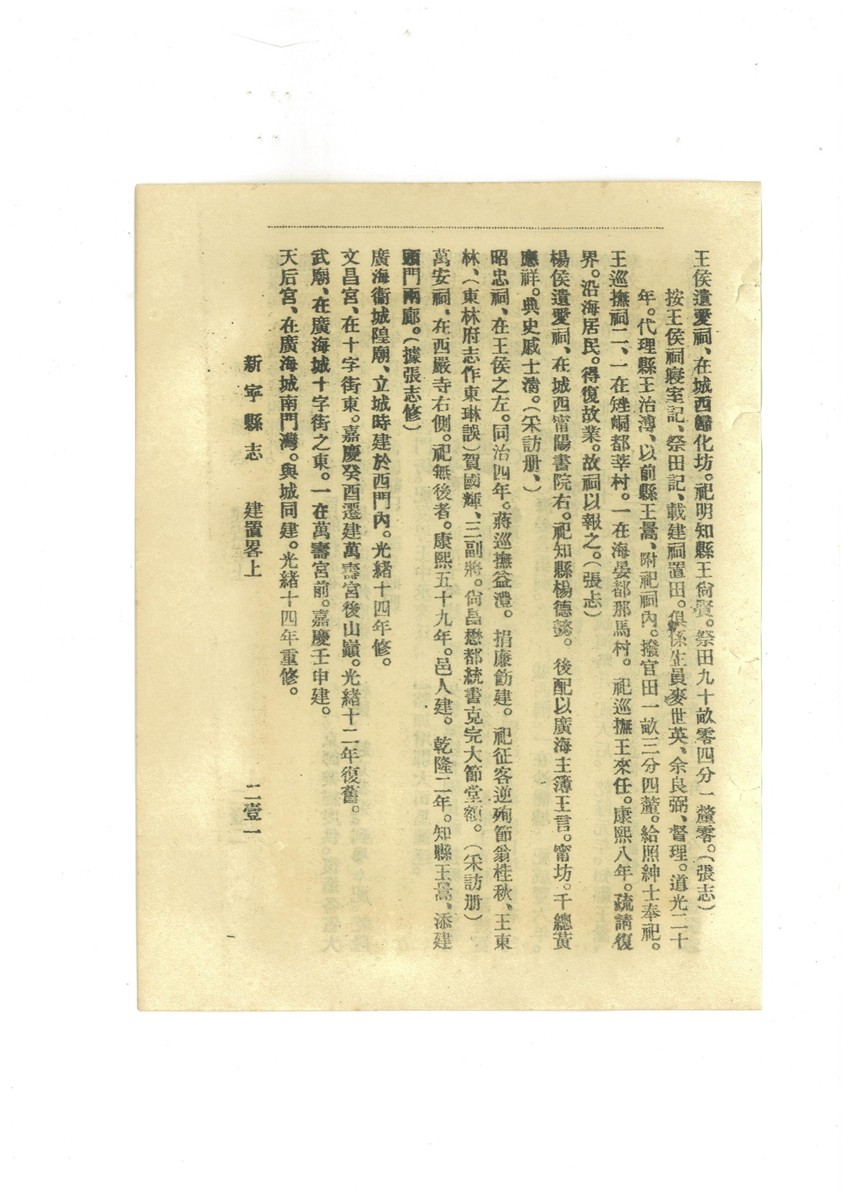 王侯遺愛祠、在城西歸化坊。祀明知縣王尙賢。祭田九十畝零四分一釐零。(張志)
按王侯祠寢室記、祭田記、載建祠置田。俱係生員麥世英、余良弼、督理。道光二十
年。代理縣王治溥、以前縣王暠、附祀祠內。撥官田一畝三分四釐。給照紳士奉祀。
王巡撫祠二、一在矬峒都莘村。一在海晏都那馬村。祀巡撫王來任。康熙八年。疏請復
界。沿海居民。得復故業。故祠以報之。(張志)
楊侯遺愛祠、在城西甯陽書院右。祀知縣楊德懿。後配以廣海主簿王言。甯坊。千總黃
應祥。典史戚士淸。(采訪册、)
昭忠祠、在王侯之左。同治四年。蔣巡撫益澧。捐廉飭建。祀征客逆殉節翁桂秋、王東
林、(東林府志作東琳誤)賀國輝、三副將。尙昌懋都統書克完大節堂額。(采訪册)
萬安祠、在西嚴寺右側。祀無後者。康熙五十九年。邑人建。乾隆二年。知縣王暠、添建
頭門兩廊。(據張志修)
廣海衞城隍廟、立城時建於西門內。光緒十四年修。
文昌宮、在十字街東。嘉慶癸酉遷建萬壽宮後山巔。光緒十二年復舊。
武廟、在廣海城十字街之東。一在萬壽宮前。嘉慶壬申建。
天后宮、在廣海城南門灣。與城同建。光緒十四年重修。
新寧縣志 建置畧上 二壹一